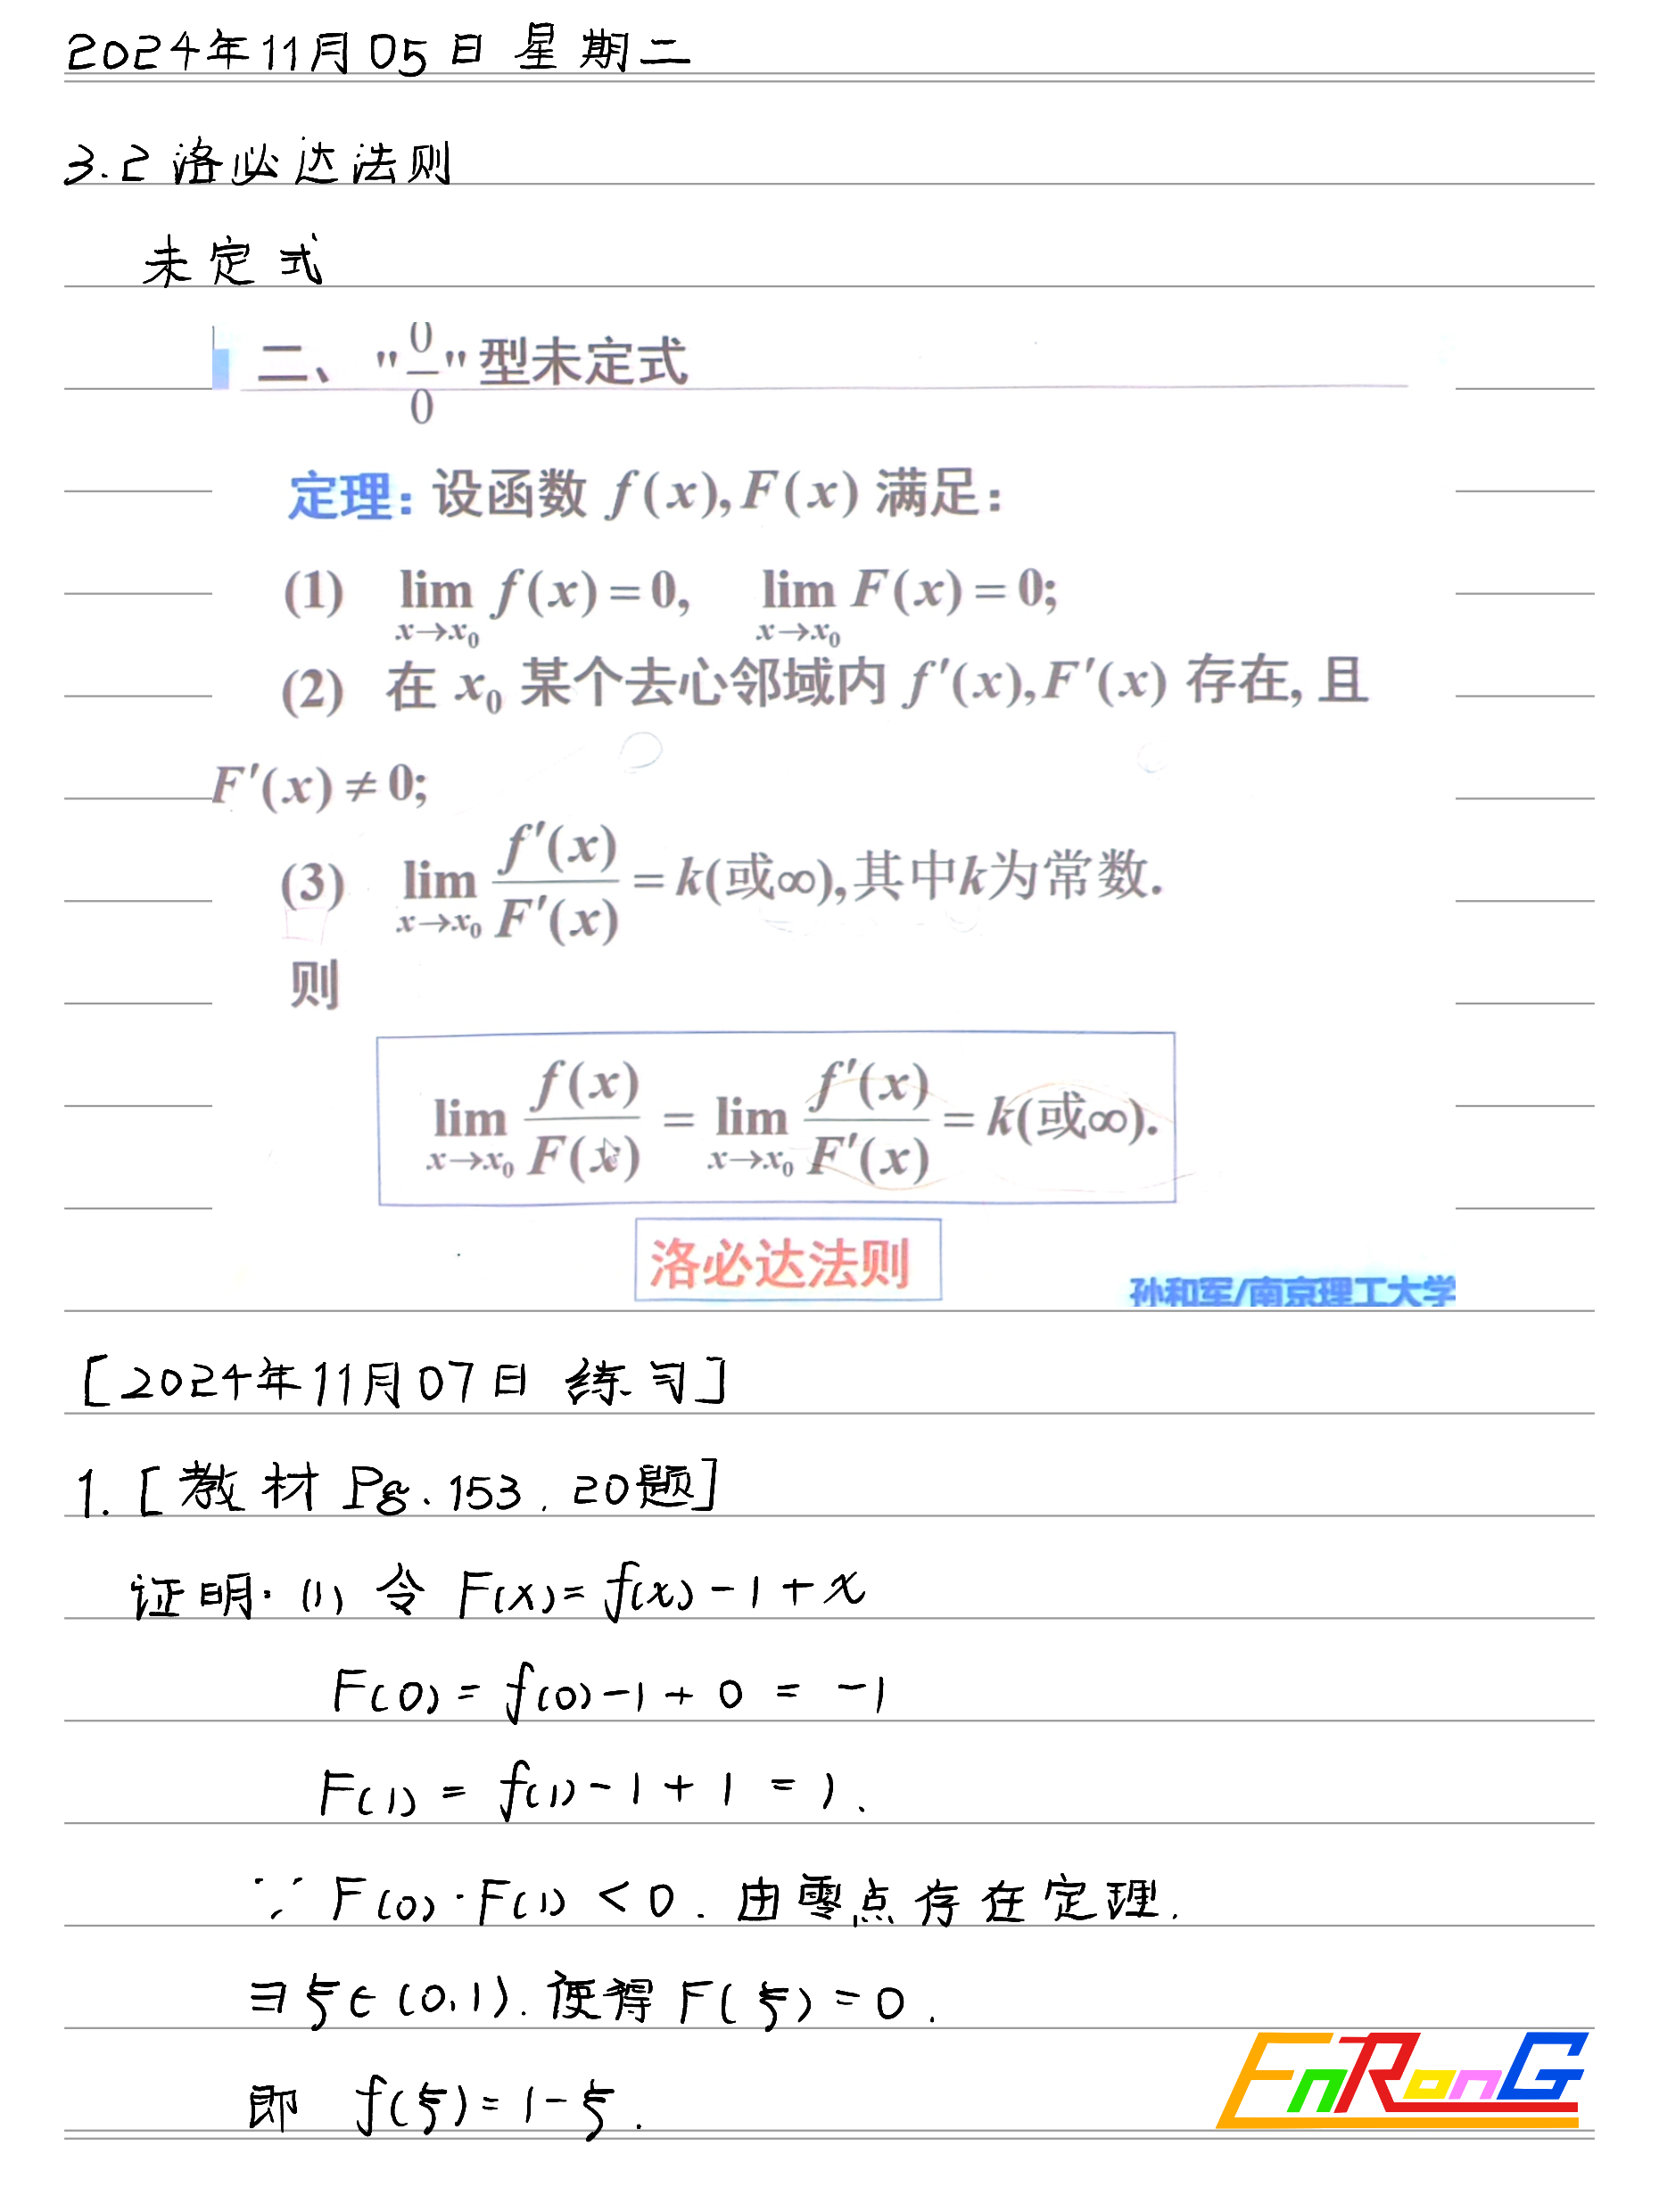 2024年11月05日 星期二
3.2 洛必达法则
未定式
二、"0/0"型未定式
定理：设函数 f(x), F(x) 满足：
(1) lim x→x₀ f(x) = 0, lim x→x₀ F(x) = 0;
(2) 在 x₀ 某个去心邻域内 f′(x), F′(x) 存在, 且
F′(x) ≠ 0;
(3) lim x→x₀ f′(x)/F′(x) = k(或∞), 其中k为常数.
则
lim x→x₀ f(x)/F(x) = lim x→x₀ f′(x)/F′(x) = k(或∞).
洛必达法则
孙和军/南京理工大学
[2024年11月07日 练习]
1. [教材 Pg. 153. 20题]
证明: (1) 令 F(x) = f(x) - 1 + x
F(0) = f(0) - 1 + 0 = -1
F(1) = f(1) - 1 + 1 = 1.
∵ F(0)·F(1) < 0. 由零点存在定理.
∃ξ∈(0,1). 使得 F(ξ) = 0.
即 f(ξ) = 1 - ξ.
EnRonG